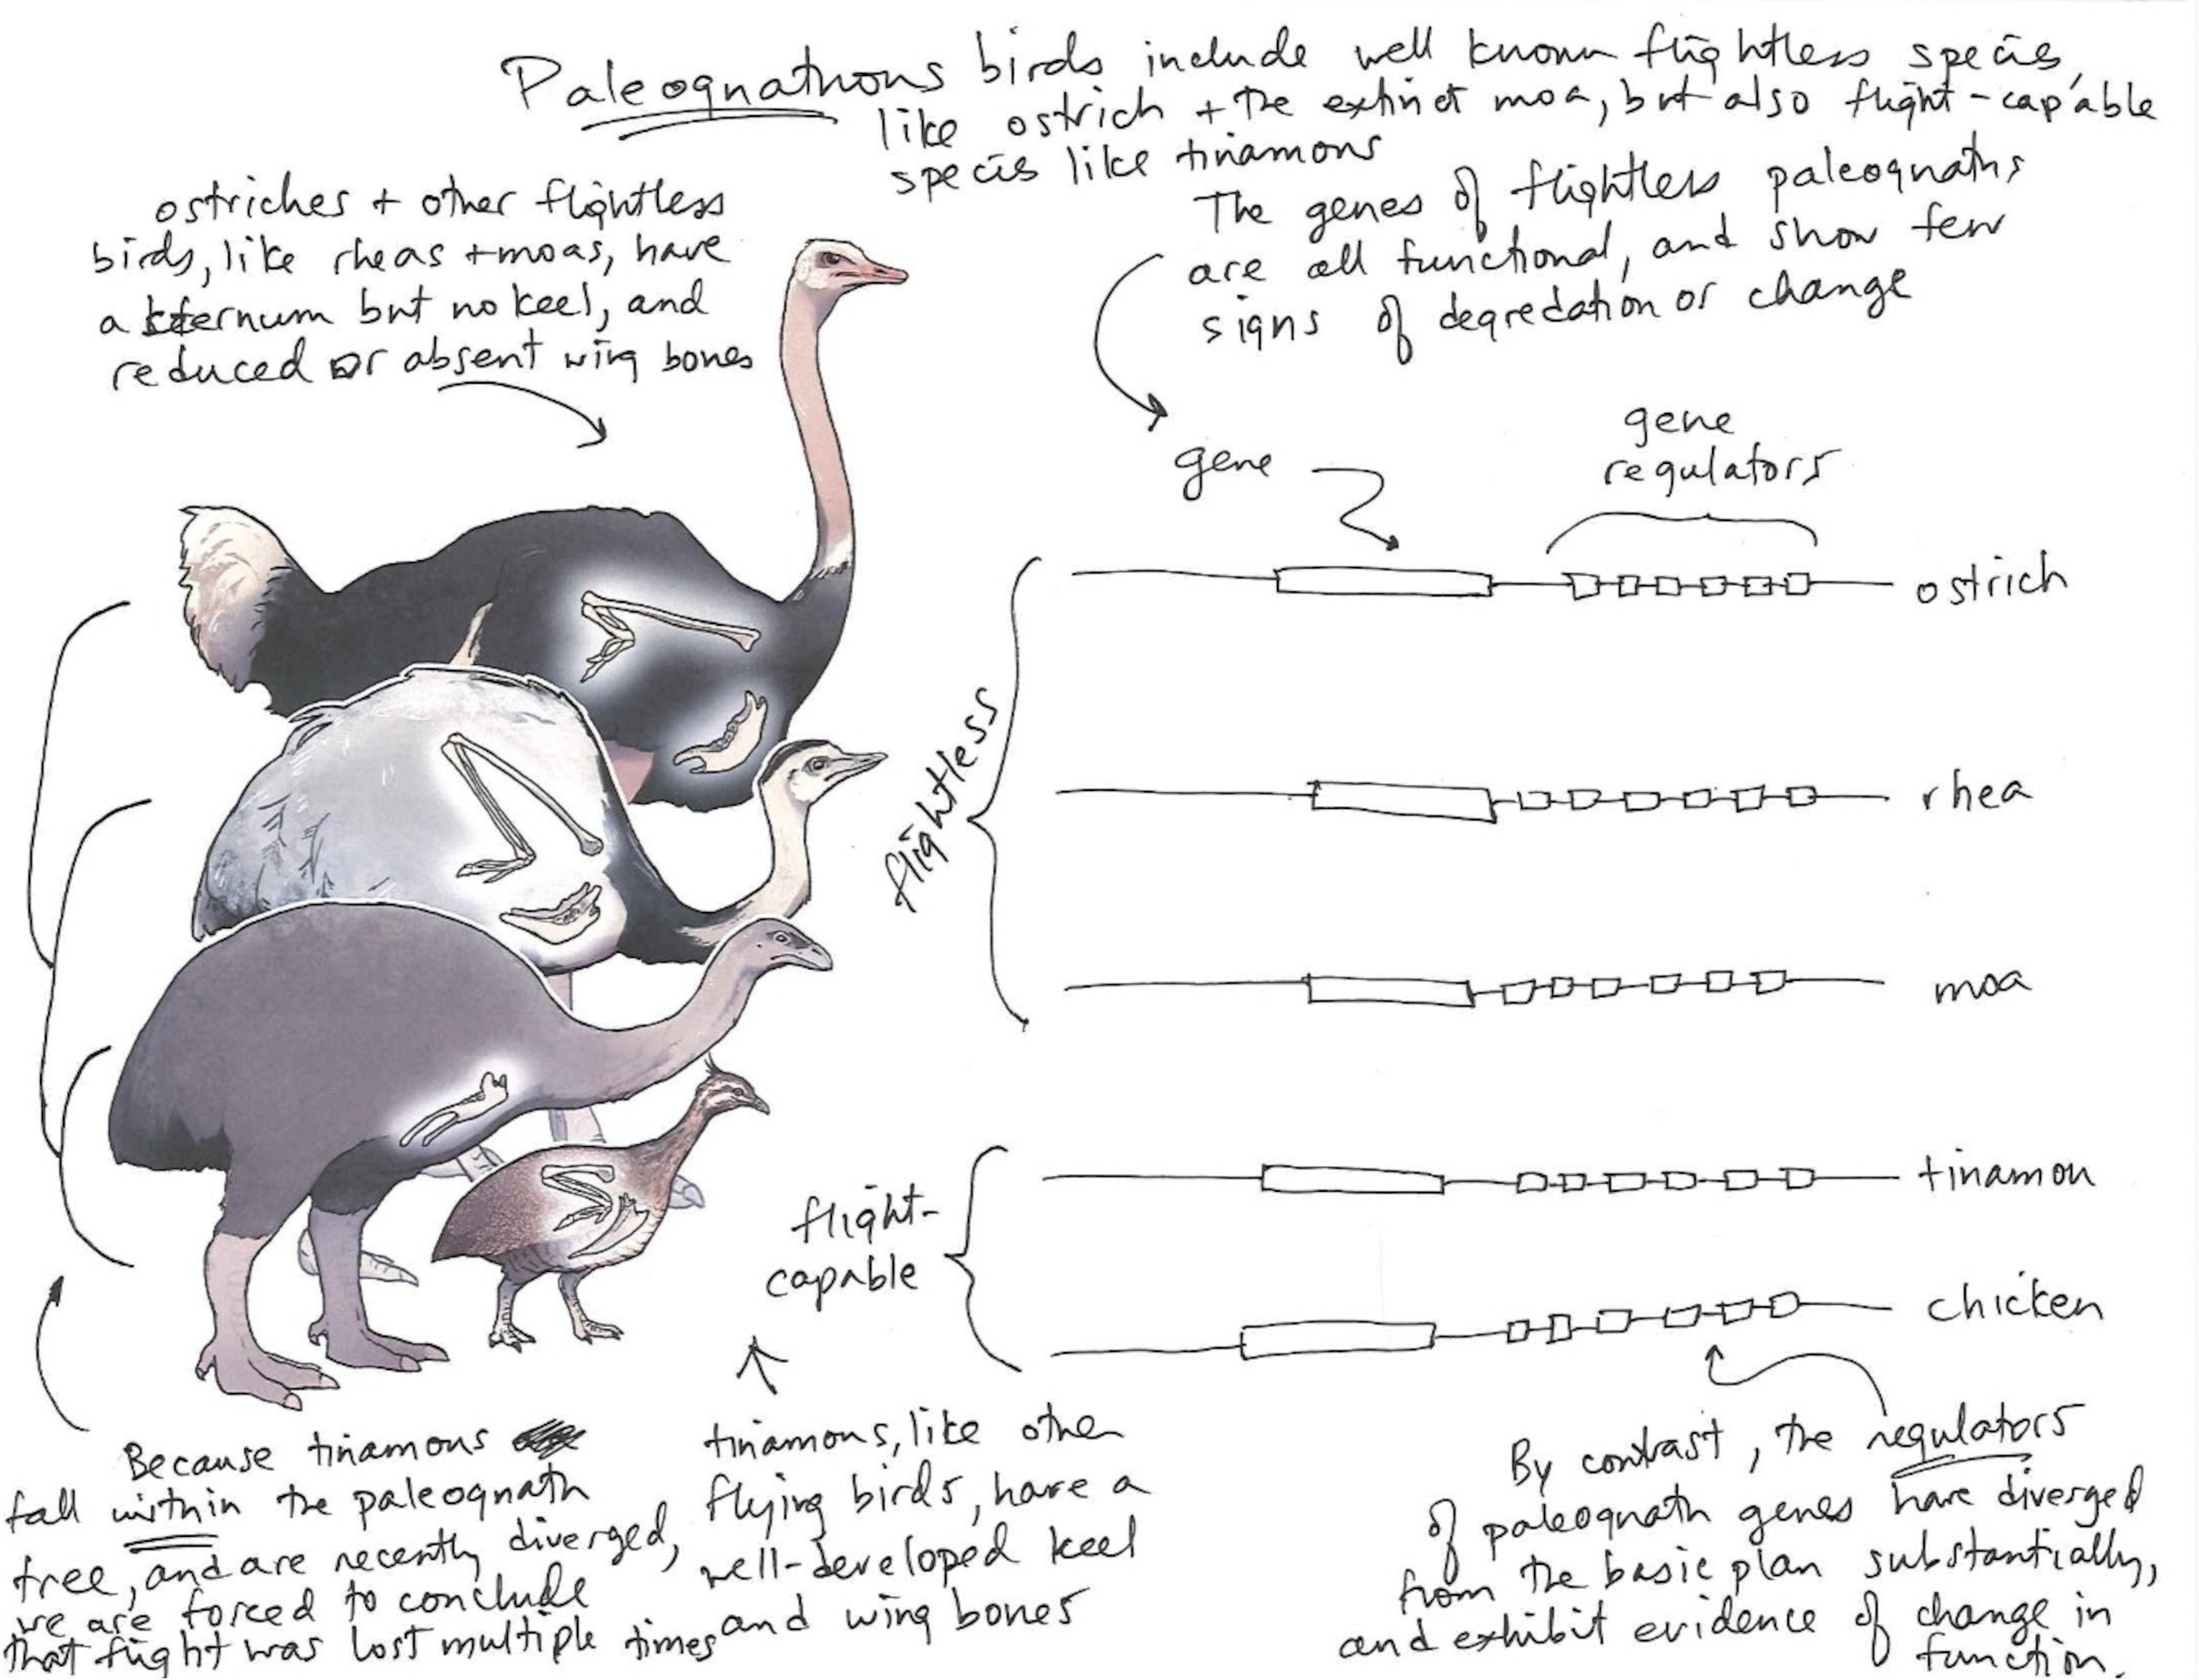 Paleognathous birds include well known flightless species,
like ostrich + the extinct moa, but also flight-capable
species like tinamous
ostriches + other flightless
birds, like rheas + moas, have
a sternum but no keel, and
reduced or absent wing bones
The genes of flightless paleognaths
are all functional, and show few
signs of degredation or change
gene
gene
regulators
flightless
ostrich
rhea
moa
flight-
capable
tinamou
chicken
Because tinamous
fall within the paleognath
tree, and are recently diverged,
we are forced to conclude
that flight was lost multiple times
tinamous, like other
flying birds, have a
well-developed keel
and wing bones
By contrast, the regulators
of paleognath genes have diverged
from the basic plan substantially,
and exhibit evidence of change in
function.